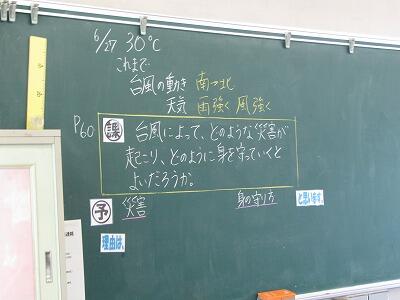 6/27 30℃
これまで
台風の動き 南→北
天気 雨強く 風強く
P60 課 台風によって、どのような災害が
起こり、どのように身を守っていくと
よいだろうか。
予 災害 身の守り方 と思います。
理由は、